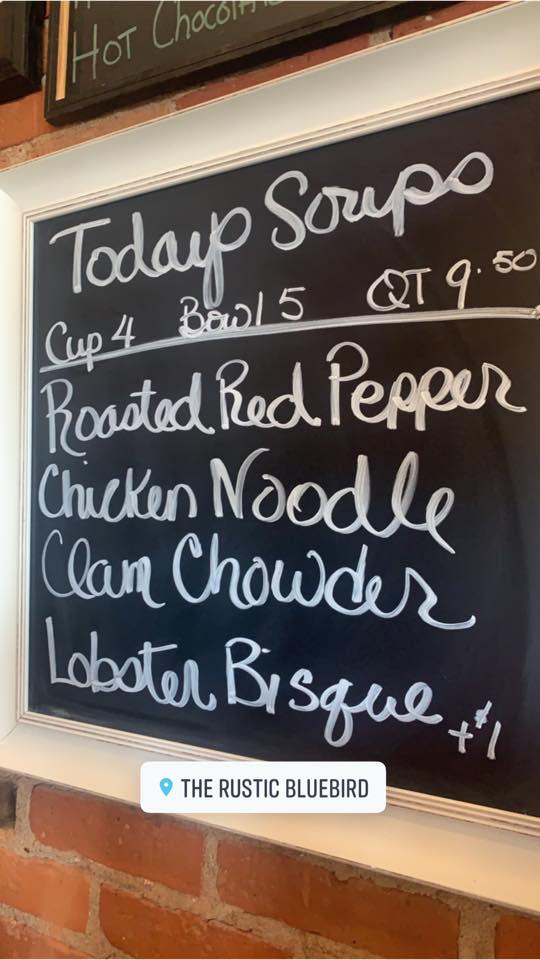 Hot Chocolate
Todays Soups
Cup 4 Bowl 5 QT 9.50
Roasted Red Pepper
Chicken Noodle
Clam Chowder
Lobster Bisque +$1
THE RUSTIC BLUEBIRD